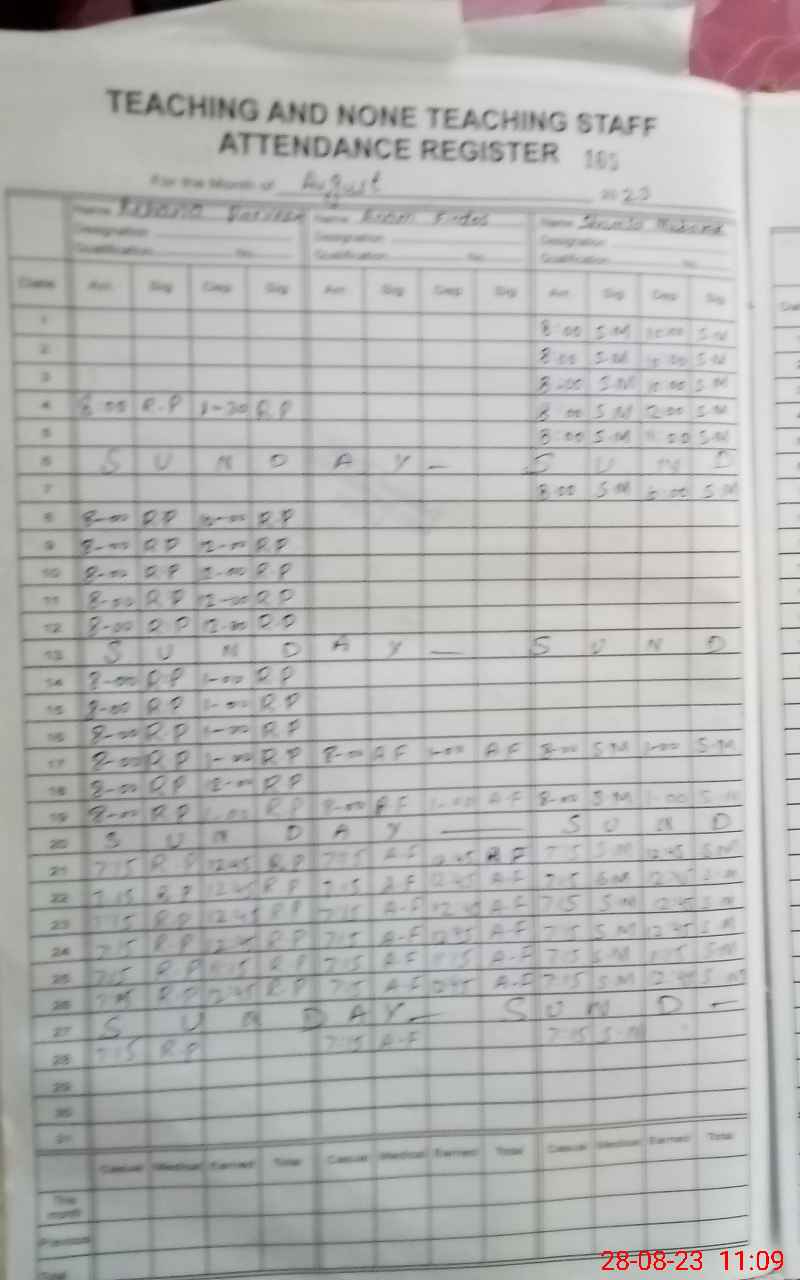 TEACHING AND NONE TEACHING STAFF
ATTENDANCE REGISTER 105
For the Month of August 2023
Name Name Anam Name
Designation Designation Designation
Qualification No. Qualification No. Qualification No.
Dates Arr. Sig Dep Sig Arr. Sig Dep Sig Arr. Sig Dep Sig
1 8:00 S.M 10:00 S.M
2 8:00 S.M 10:00 S.M
3 8:00 S.M 10:00 S.M
4 8:00 R.P 1-30 R.P 8:00 S.M 12:00 S.M
5 8:00 S.M 11:00 S.M
6 S U N D A Y - S U N D
7 8:00 S.M S.M
8 8-00 R.P R.P
9 8-00 R.P 12-00 R.P
10 8-00 R.P 12-00 R.P
11 8-00 R.P 12-00 R.P
12 8-00 R.P R.P
13 S U N D A Y - S U N D
14 8-00 R.P 1-00 R.P
15 8-00 R.P 1-00 R.P
16 8-00 R.P R.P
17 8-00 R.P 1-00 R.P 8-00 A.F 1-00 A.F 8-00 S.M 1-00 S.M
18 8-00 R.P 12-00 R.P
19 8-00 R.P 1-00 R.P 8-00 A.F 1-00 A.F 8-00 S.M 1-00 S.M
20 S U N D A Y - S U N D
21 7:15 R.P 12:45 R.P 7:15 A.F 12:45 A.F 7:15 S.M 12:45 S.M
22 7:15 R.P 12:45 R.P 7:15 A.F 12:45 A.F 7:15 S.M 12:45 S.M
23 7:15 R.P 12:45 R.P 7:15 A.F 12:45 A.F 7:15 S.M 12:45 S.M
24 7:15 R.P 12:45 R.P 7:15 A.F 12:45 A.F 7:15 S.M 12:45 S.M
25 7:15 R.P 11:15 R.P 7:15 A.F 11:15 A.F 7:15 S.M 11:15 S.M
26 7:15 R.P 12:45 R.P 7:15 A.F 12:45 A.F 7:15 S.M 12:45 S.M
27 S U N D A Y - S U N D -
28 7:15 R.P 7:15 A.F 7:15 S.M
29
30
31
Casual Medical Earned Total Casual Medical Earned Total Casual Medical Earned Total
This month
Previous
Total
28-08-23 11:09